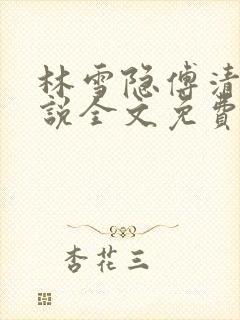 林雪隐傅清
説全文免費
杏花三